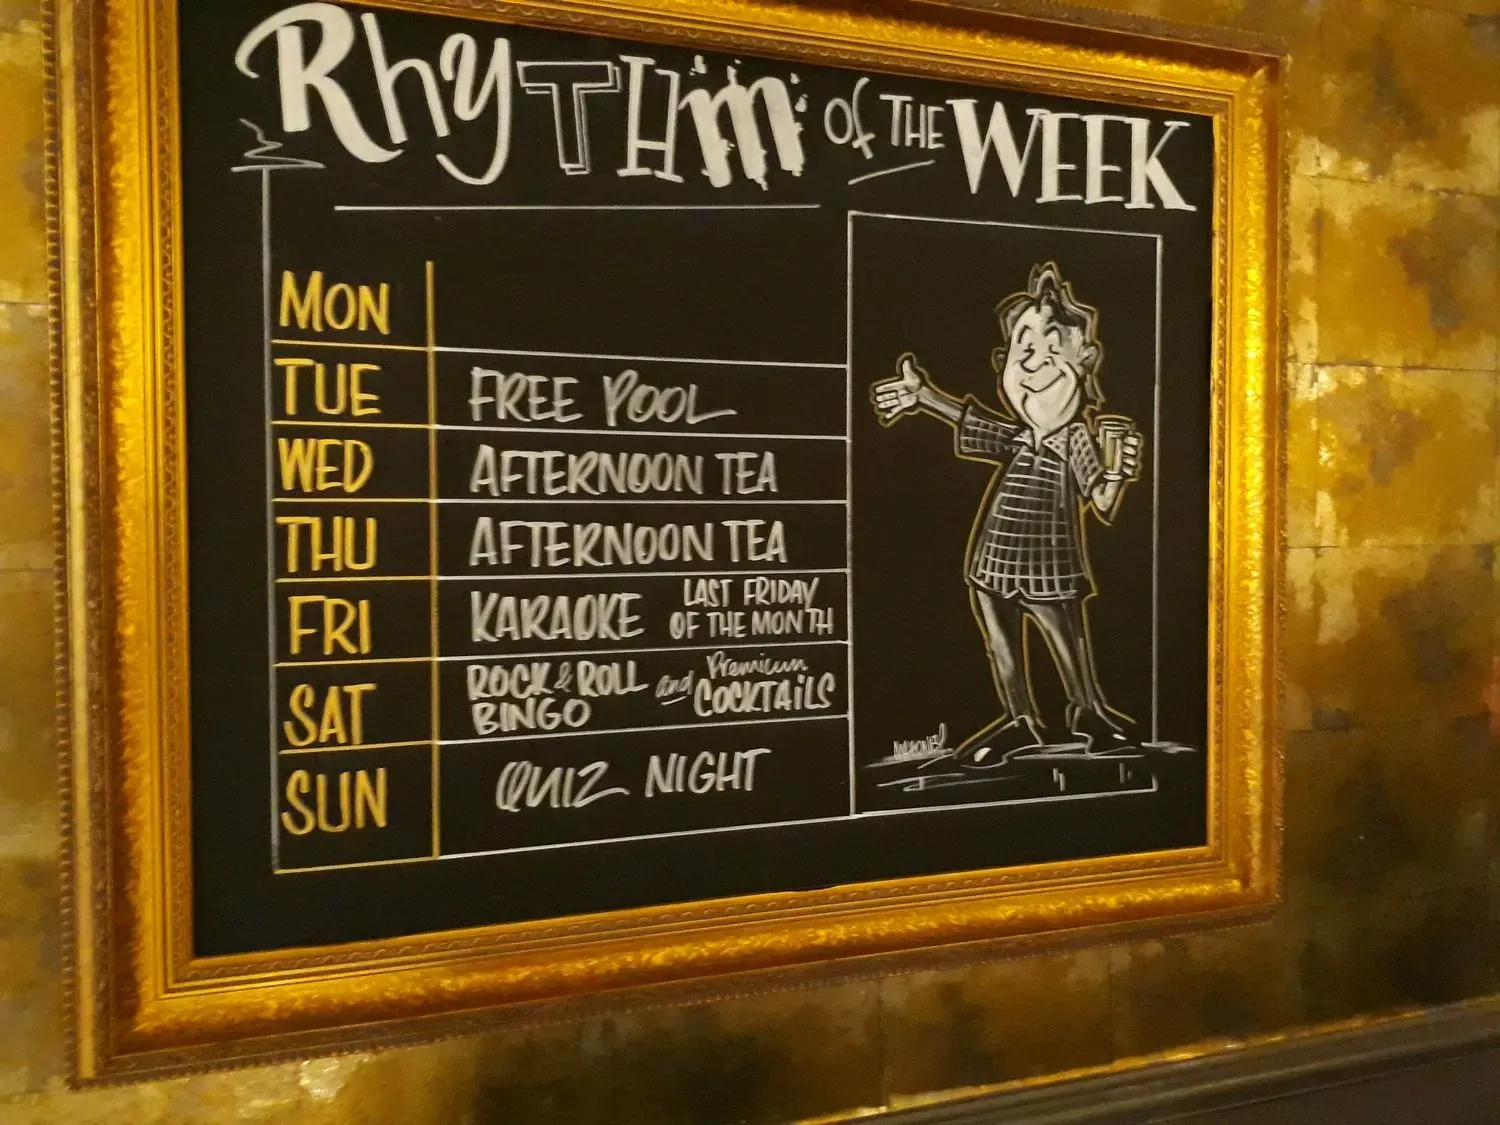 RhyTHm of THE WEEK
MON
TUE FREE POOL
WED AFTERNOON TEA
THU AFTERNOON TEA
FRI KARAOKE LAST FRIDAY
OF THE MONTH
SAT ROCK & ROLL and Premium
BINGO COCKTAiLS
SUN QUIZ NIGHT